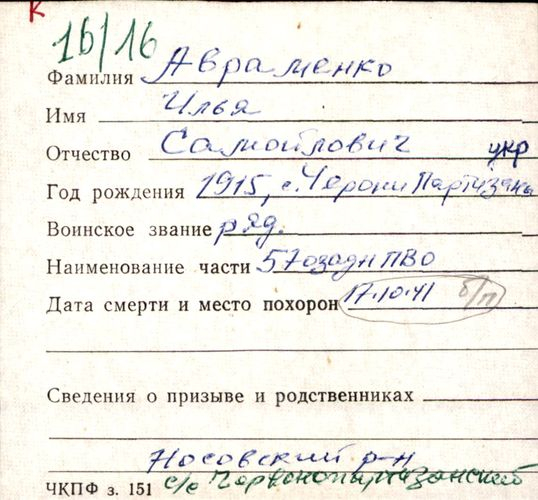 К
16/16
Фамилия Авраменко
Имя Илья
Отчество Самойлович укр
Год рождения 1915, с. Червони Партизаны
Воинское звание ряд.
Наименование части 57озадн ПВО
Дата смерти и место похорон 17.10.41 б/п
Сведения о призыве и родственниках
Носовский р-н
ЧКПФ з. 151 с/с Червонопартизанский